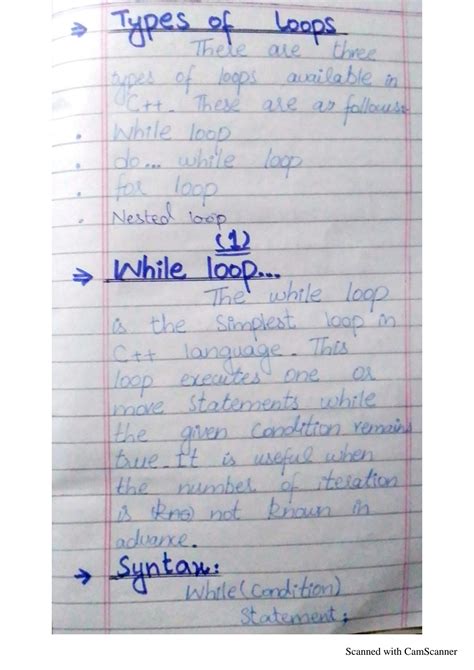 ⇒ Types of loops
There are three
types of loops available in
C++. These are as follows:
• While loop
• do... while loop
• for loop
• Nested loop
(1)
⇒ While loop...
The while loop
is the simplest loop in
C++ language. This
loop executes one or
more statements while
the given condition remains
true. It is useful when
the number of iteration
is (kno) not known in
advance.
→ Syntax:
While(Condition)
Statement;
Scanned with CamScanner